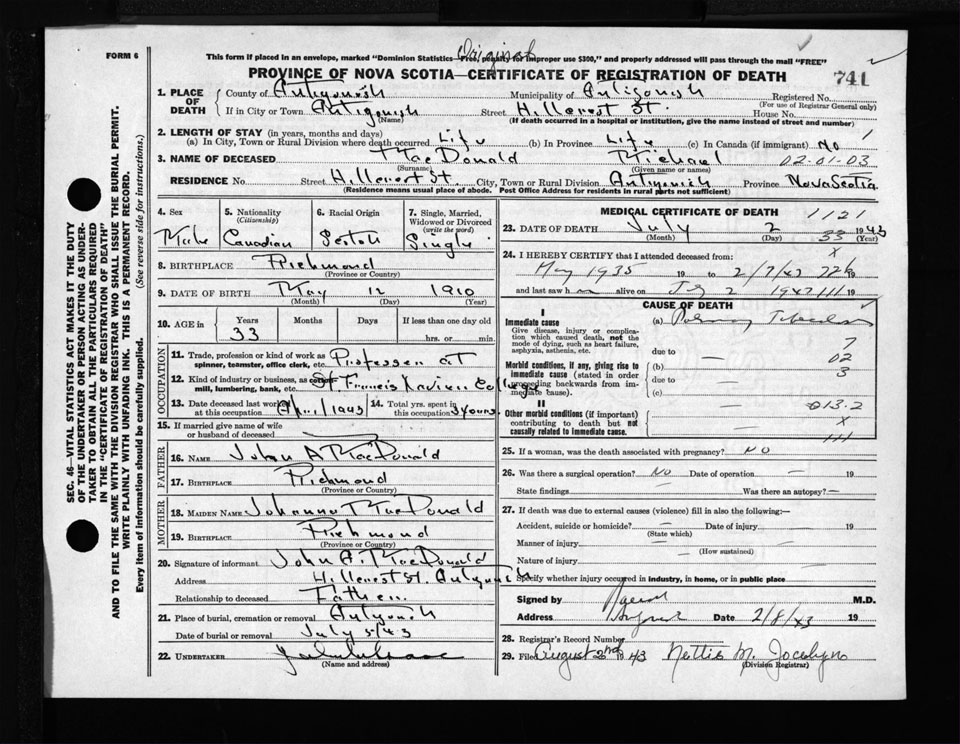 Original
FORM 6
This form if placed in an envelope, marked "Dominion Statistics—Free, penalty for improper use $300," and properly addressed will pass through the mail "FREE"
PROVINCE OF NOVA SCOTIA—CERTIFICATE OF REGISTRATION OF DEATH 741
1. PLACE OF DEATH County of Antigonish Municipality of Antigonish Registered No.
(For use of Registrar General only)
If in City or Town Antigonish Street Hillcrest St. House No.
(Name) (If death occurred in a hospital or institution, give the name instead of street and number)
2. LENGTH OF STAY (in years, months and days)
(a) In City, Town or Rural Division where death occurred Life (b) In Province Life (c) In Canada (if immigrant) No 1
3. NAME OF DECEASED MacDonald Michael 02-01-03
(Surname) (Given name or names)
RESIDENCE No. Street Hillcrest St. City, Town or Rural Division Antigonish Province Nova Scotia
(Residence means usual place of abode. Post Office Address for residents in rural parts not sufficient)
SEC. 46—VITAL STATISTICS ACT MAKES IT THE DUTY
OF THE UNDERTAKER OR PERSON ACTING AS UNDER-
TAKER TO OBTAIN ALL THE PARTICULARS REQUIRED
IN THE "CERTIFICATE OF REGISTRATION OF DEATH"
AND TO FILE THE SAME WITH THE DIVISION REGISTRAR WHO SHALL ISSUE THE BURIAL PERMIT.
WRITE PLAINLY WITH UNFADING INK. THIS IS A PERMANENT RECORD.
Every item of information should be carefully supplied. (See reverse side for instructions.)
4. Sex 5. Nationality (Citizenship) 6. Racial Origin 7. Single, Married, Widowed or Divorced (write the word)
Male Canadian Scotch Single
8. BIRTHPLACE Richmond
(Province or Country)
9. DATE OF BIRTH May 12 1910
(Month) (Day) (Year)
10. AGE in Years Months Days If less than one day old
33 hrs. or min.
OCCUPATION
11. Trade, profession or kind of work as Professor at
spinner, teamster, office clerk, etc.
12. Kind of industry or business, as cotton St. Francis Xavier College
mill, lumbering, bank, etc.
13. Date deceased last worked at this occupation April 1943 14. Total yrs. spent in this occupation 3 years.
15. If married give name of wife
or husband of deceased
FATHER
16. NAME John A MacDonald
17. BIRTHPLACE Richmond
(Province or Country)
MOTHER
18. MAIDEN NAME Johanna MacDonald
19. BIRTHPLACE Richmond
(Province or Country)
20. Signature of informant John A. MacDonald
Address Hillcrest St. Antigonish
Relationship to deceased Father
21. Place of burial, cremation or removal Antigonish
Date of burial or removal July 5/43
22. UNDERTAKER
(Name and address)
MEDICAL CERTIFICATE OF DEATH 1121
23. DATE OF DEATH July 2 33 1943
(Month) (Day) (Year)
X
24. I HEREBY CERTIFY that I attended deceased from:
May 1935 19 to 2/7/43 19
and last saw h alive on 2 194 111 19
CAUSE OF DEATH
I
Immediate cause (a)
Give disease, injury or complication which caused death, not the mode of dying, such as heart failure, asphyxia, asthenia, etc.
due to — 7
02
Morbid conditions, if any, giving rise to immediate cause (stated in order proceeding backwards from immediate cause). (b) — 3
due to —
(c) —
II 013.2
Other morbid conditions (if important) contributing to death but not causally related to immediate cause. — X
111
25. If a woman, was the death associated with pregnancy? NO
26. Was there a surgical operation? NO Date of operation — 19
State findings — Was there an autopsy? —
27. If death was due to external causes (violence) fill in also the following:—
Accident, suicide or homicide? — Date of injury — 19
(State which)
Manner of injury —
(How sustained)
Nature of injury —
Specify whether injury occurred in industry, in home, or in public place
Signed by M.D.
Address Date 2/8/43 19
28. Registrar's Record Number
29. Filed August 2nd 1943 Nettie M. Jocelyn
(Division Registrar)